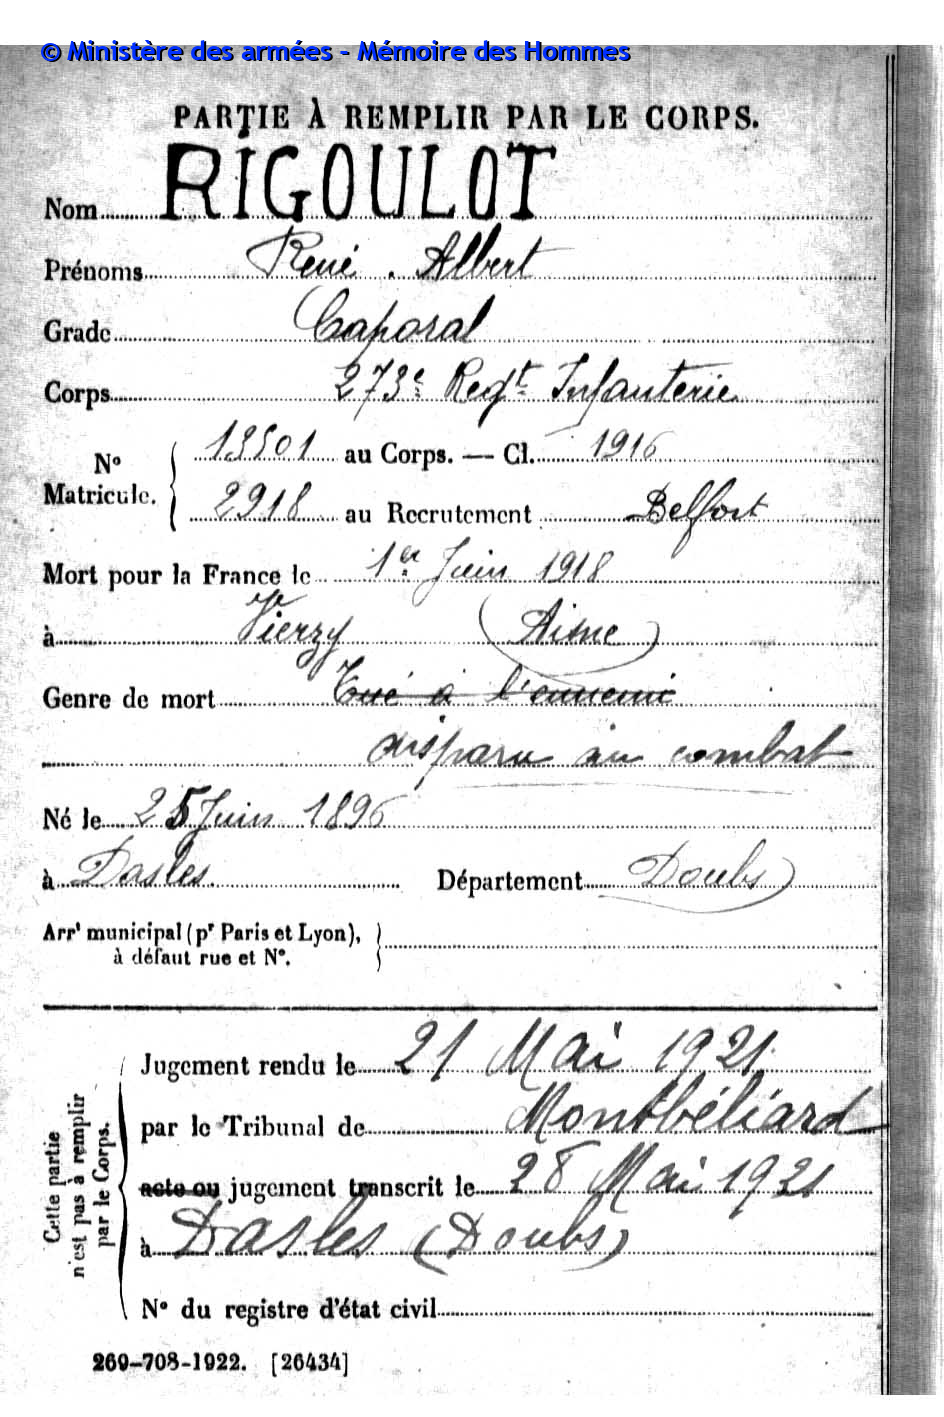 © Ministère des armées - Mémoire des Hommes
PARTIE À REMPLIR PAR LE CORPS.
Nom RIGOULOT
Prénoms René . Albert
Grade Caporal
Corps 273e Regt Infanterie
No Matricule. 13501 au Corps. — Cl. 1916
2918 au Recrutement Belfort
Mort pour la France le 1er Juin 1918
à Vierzy (Aisne)
Genre de mort Tué à l'ennemi
disparu au combat
Né le 25 Juin 1896
à Dasles Département Doubs)
Arrt municipal (pr Paris et Lyon),
à défaut rue et No.
Cette partie
n'est pas à remplir
par le Corps.
Jugement rendu le 21 Mai 1921
par le Tribunal de Montbéliard
acte ou jugement transcrit le 28 Mai 1921
à Dasles (Doubs)
No du registre d'état civil
269-708-1922. [26434]